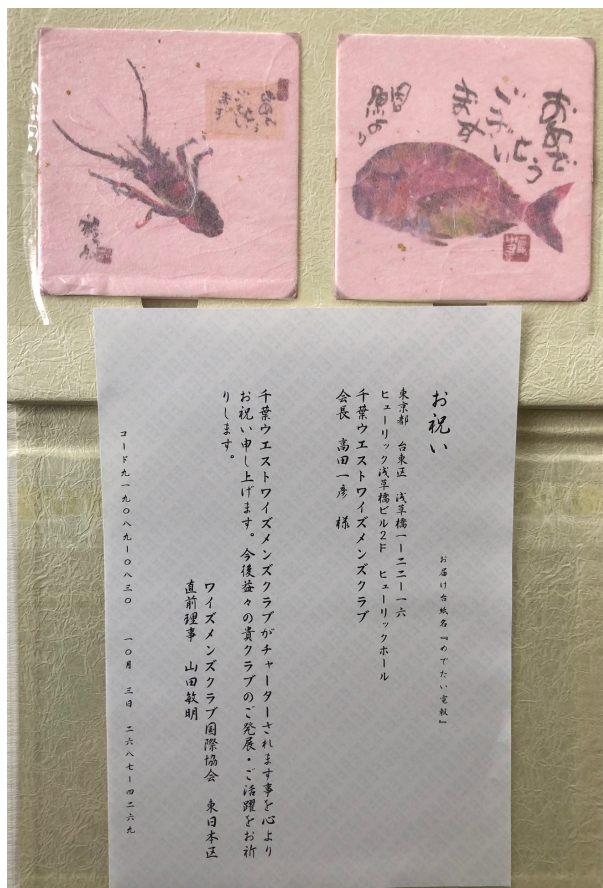 おめで
とう
ござい
ます
鯛より
お祝い
お届け台紙名『めでたい電報』
東京都 台東区 浅草橋一ー二二ー一六
ヒューリック浅草橋ビル2F ヒューリックホール
千葉ウエストワイズメンズクラブ
会長 高田一彦 様
千葉ウエストワイズメンズクラブがチャーターされます事を心より
お祝い申し上げます。今後益々の貴クラブのご発展・ご活躍をお祈
りします。
ワイズメンズクラブ国際協会 東日本区
直前理事 山田敏明
コード九一九〇八九ー〇八三〇 一〇月 三日 二六八七ー四二六九